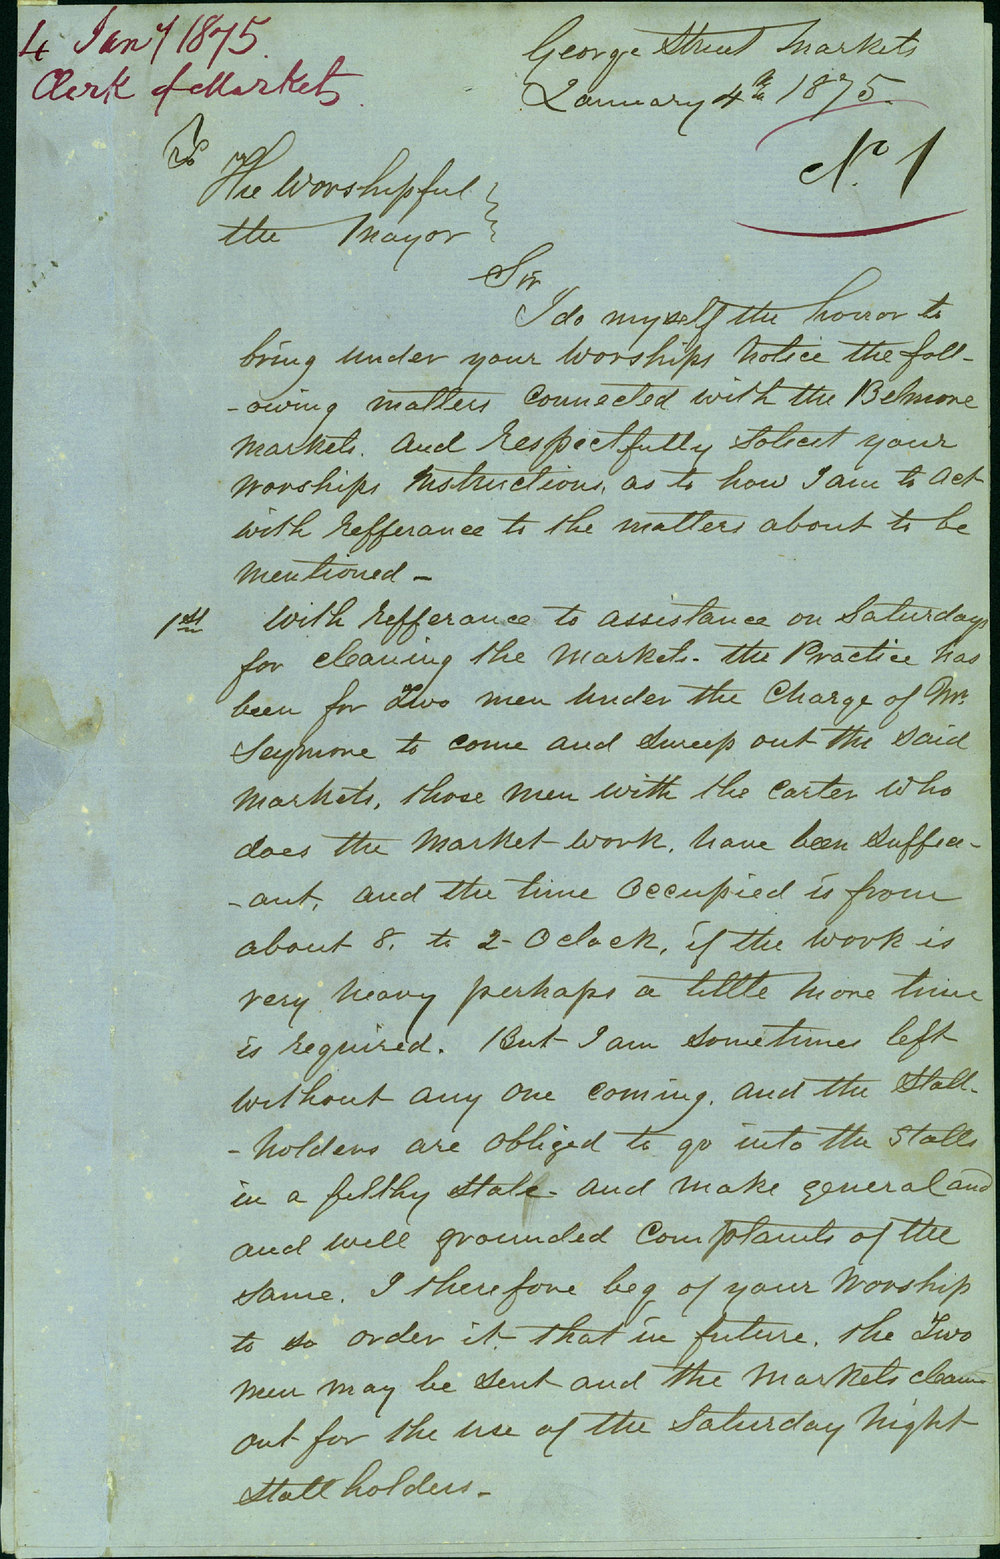 4 Jany 1875.
Clerk of Markets.
George Street Markets
January 4th 1875.
No. 1
To
The Worshipful
the Mayor
Sir
I do myself the honor to
bring under your Worships Notice the foll-
-owing matters Connected with the Belmore
Markets. and respectfully Solicit your
Worships Instructions, as to how I am to act
with refferance to the matters about to be
mentioned -
1st With refferance to assistance on Saturdays
for cleaning the Markets - the Practice has
been for Two men under the Charge of Mr.
Seymore to come and Sweep out the said
Markets, those men with the Carter who
does the Market work, have been Suffici-
-ant, and the time Occupied is from
about 8. to 2 - O clock, if the work is
very heavy perhaps a little more time
is required. But I am sometimes left
without any one coming. and the Stall-
-holders are obliged to go into the Stalls
in a filthy State - and make general and
and well grounded Complaints of the
same. I therefore beg of your Worship
to so order it, that in future, the Two
men may be sent and the Markets clean
out for the use of the Saturday Night
Stall holders -